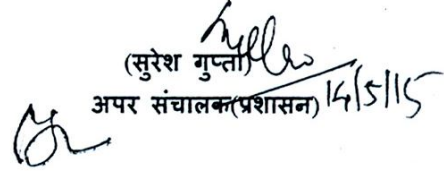 (सुरेश गुप्ता)
अपर संचालक(प्रशासन) 14/5/15